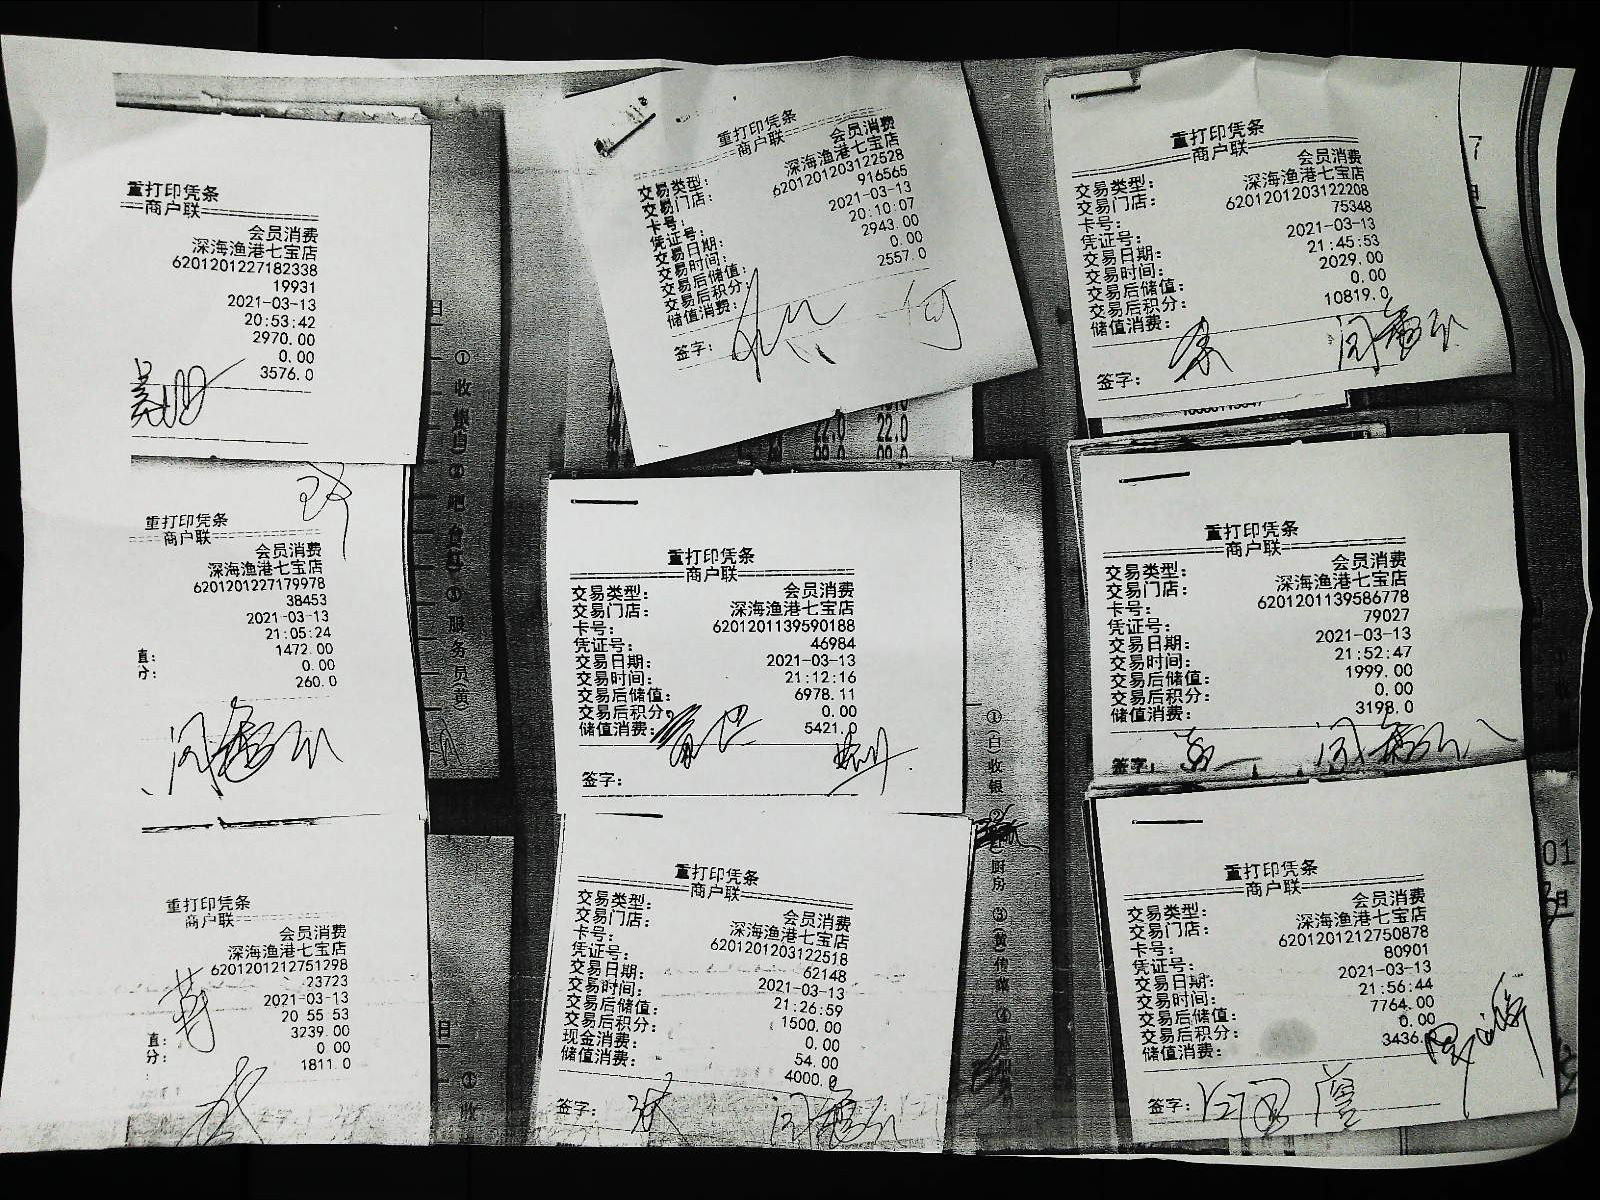 重打印凭条
商户联
会员消费
深海渔港七宝店
6201201227182338
19931
2021-03-13
20:53:42
2970.00
0.00
3576.0
重打印凭条
商户联
交易类型: 会员消费
交易门店: 深海渔港七宝店
卡号: 6201201203122528
凭证号: 916565
交易日期: 2021-03-13
交易时间: 20:10:07
交易后储值: 2943.00
交易后积分: 0.00
储值消费: 2557.0
签字:
重打印凭条
商户联
交易类型: 会员消费
交易门店: 深海渔港七宝店
卡号: 6201201203122208
凭证号: 75348
交易日期: 2021-03-13
交易时间: 21:45:53
交易后储值: 2029.00
交易后积分: 0.00
储值消费: 10819.0
签字:
22.0 22.0
重打印凭条
商户联
会员消费
深海渔港七宝店
6201201227179978
38453
2021-03-13
21:05:24
直: 1472.00
分: 0.00
260.0
重打印凭条
商户联
交易类型: 会员消费
交易门店: 深海渔港七宝店
卡号: 6201201139590188
凭证号: 46984
交易日期: 2021-03-13
交易时间: 21:12:16
交易后储值: 6978.11
交易后积分: 0.00
储值消费: 5421.0
签字:
重打印凭条
商户联
交易类型: 会员消费
交易门店: 深海渔港七宝店
卡号: 6201201139586778
凭证号: 79027
交易日期: 2021-03-13
交易时间: 21:52:47
交易后储值: 1999.00
交易后积分: 0.00
储值消费: 3198.0
签字:
重打印凭条
商户联
会员消费
深海渔港七宝店
6201201212751298
23723
2021-03-13
20 55 53
直: 3239.00
分: 0 00
1811.0
重打印凭条
商户联
交易类型: 会员消费
交易门店: 深海渔港七宝店
卡号: 6201201203122518
凭证号: 62148
交易日期: 2021-03-13
交易时间: 21:26:59
交易后储值: 1500.00
交易后积分: 0.00
现金消费: 54.00
储值消费: 4000.0
签字:
重打印凭条
商户联
交易类型: 会员消费
交易门店: 深海渔港七宝店
卡号: 6201201212750878
凭证号: 80901
交易日期: 2021-03-13
交易时间: 21:56:44
交易后储值: 7764.00
交易后积分: 0.00
储值消费: 3436.
签字:
①(白)收银
服务员(黄)